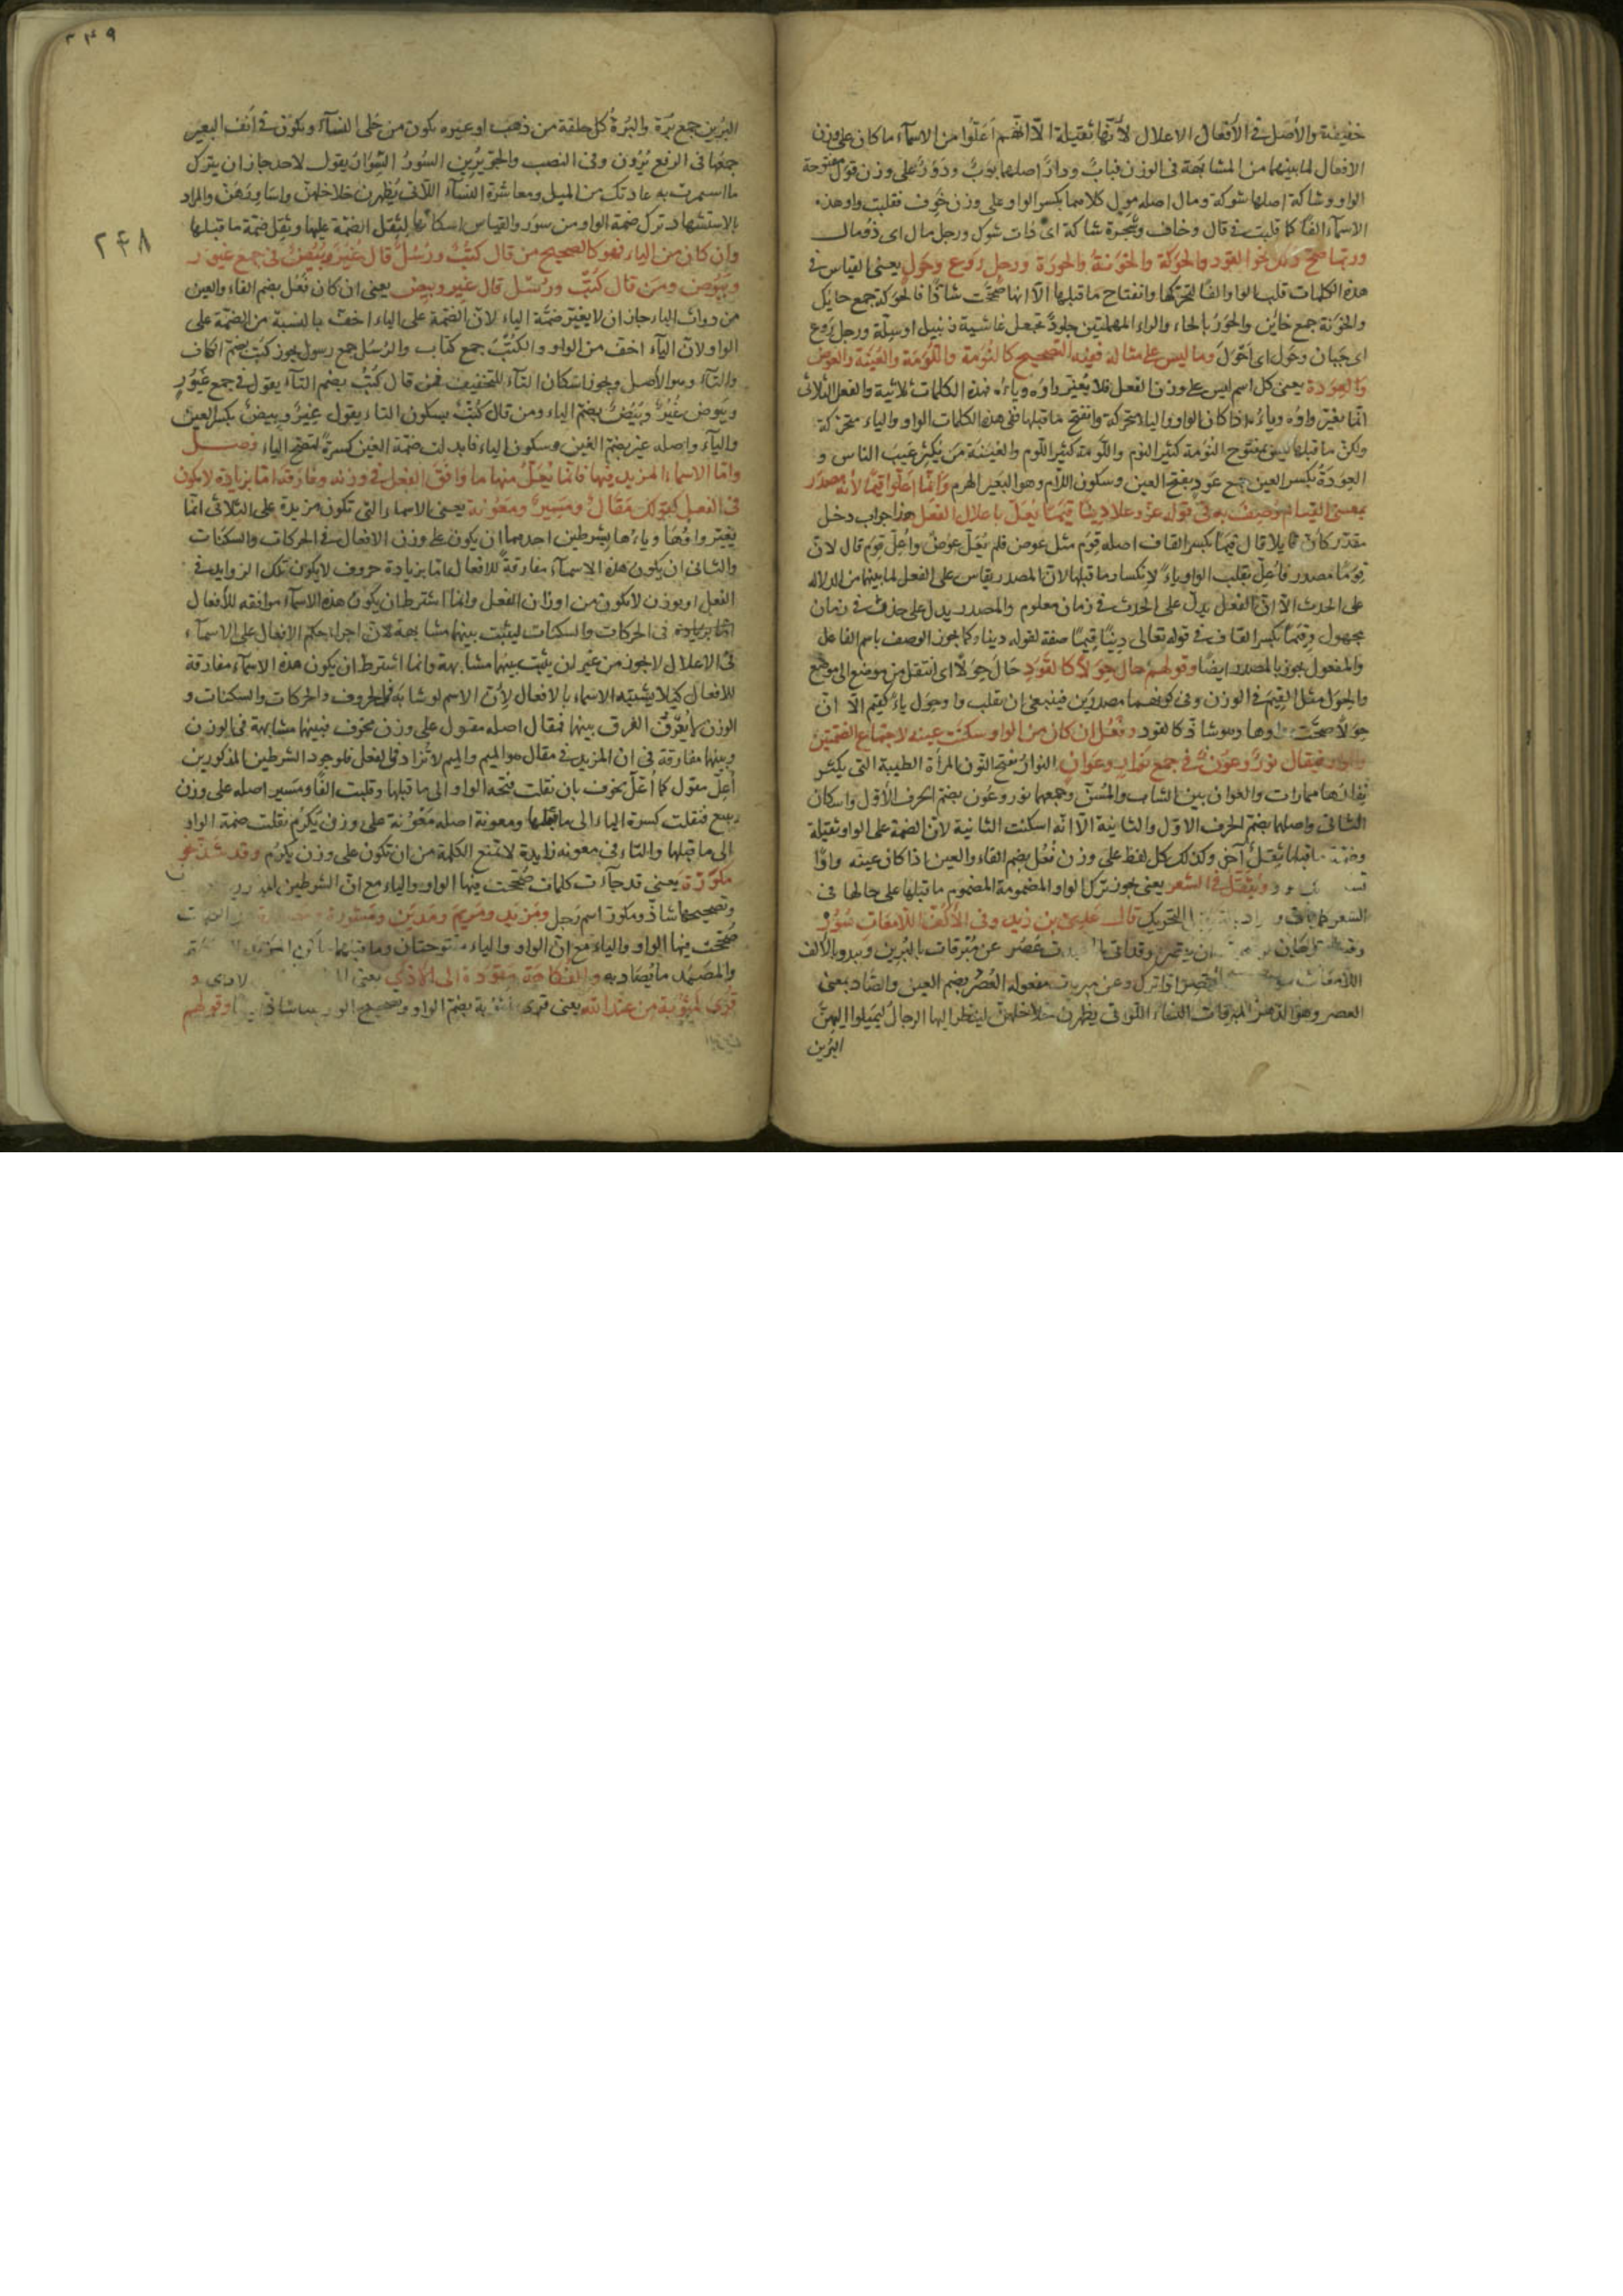 خفيفة والأصل في الأفعال الاعلال لأنها ثقيلة الا انهم اعلوا من الاسماء ما كان على وزن
الافعال لما بينهما من المشابهة في الوزن فباب ودار اصلهما بوب ودور على وزن قول مفتوحة
الواو وشاكة اصلها شوكة ومال اصله مول كلاهما بكسر الواو على وزن خوف فقلبت واو هذه
الاسماء الفا كما قلبت في قال وخاف وشجرة شاكة اى ذات شوك ورجل مال اى ذو مال
وربما صح ذلك نحو القود والحوكة والخونة والحورة ورجل روع وحول يعنى القياس في
هذه الكلمات قلب الواو الفا لتحركها وانفتاح ما قبلها الا انها صححت شاذا فالحوكة جمع حايك
والخونة جمع خاين والحور بالحاء والراء المهملتين جلود تجعل غاشية زنبيل او سلة ورجل روع
اى جبان وحول اى احول وما ليس على مثاله ففيه التصحيح كالنومة واللومة والعيبة والعوض
والعودة يعنى كل اسم ليس على وزن الفعل فلا يغير واوه وياءه فهذه الكلمات ثلاثية والفعل الثلاثى
انما يغير واوه وياءه اذا كان الواو والياء متحركة وانفتح ما قبلها ففى هذه الكلمات الواو والياء متحركة
ولكن ما قبلها ليس بمفتوح النومة كثير النوم واللومة كثير اللوم والعيبة من يكثر عيب الناس و
العودة بكسر العين جمع عود بفتح العين وسكون اللام وهو البعير الهرم وانما اعلوا قيما لأنه مصدر
بمعنى القيام وصف به في قوله عز وعلا دينا قيما يعل باعلال الفعل هذا جواب دخل
مقدر كان قايلا قال قيما بكسر القاف اصله قوم مثل عوض فلم يعل عوض واعل قوم قال لان
قوما مصدر فاعل بقلب الواو ياء لانكسار ما قبلها لان المصدر يقاس على الفعل لما بينهما من الدلالة
على الحدث الا ان الفعل يدل على الحدث في زمان معلوم والمصدر يدل على حدث في زمان
مجهول وقيما بكسر القاف في قوله تعالى دينا قيما صفة لقوله دينا وكما يجوز الوصف باسم الفاعل
والمفعول يجوز بالمصدر ايضا وقولهم حال حولا كالقود حال حولا اى انتقل من موضع الى موضع
والحول مثل القيم في الوزن وفى كونهما مصدرين فينبغى ان تقلب واو حول ياء كقيم الا ان
حولا صحت واوها وهو شاذ كالقود وفعل ان كان من الواو سكنت عينه لاجتماع الضمتين
والواو فيقال نور وعون في جمع نوار وعوان النوار بفتح النون المرأة الطيبة التى يكثر
نفارها والعوان بين الشاب والمسن وجمعهما نور وعون بضم الحرف الاول واسكان
الثانى واصلهما بضم الحرف الاول والثانية الا انه اسكنت الثانية لان الضمة على الواو ثقيلة
وضمة ما قبلها ثقل آخر وكذلك كل لفظ على وزن فعل بضم الفاء والعين اذا كان عينه واوا
ويثقل في الشعر يعنى يجوز ترك الواو المضمومة المضموم ما قبلها على حالها في
الشعر التحريك قال عدى بن زيد وفى الأكف اللامعات سور
وقد ان يقصر وقد اتى عصر عن مبرقات بالبرين وتبدو بالاكف
اللامعات وعن مبرقات مفعوله العصر بضم العين والصاد بمعنى
العصر وهو الدهر المبرقات النساء اللواتى يظهرن خلاخلهن لينظر اليها الرجال ليميلوا اليهن
البرين
٢٤٩
٢٤٨
البرين جمع برة والبرة كل حلقة من ذهب او غيره يكون من حلى النساء ويكون في انف البعير
جمعها في الرفع برون وفى النصب والجر برين السور السوار يقول لاحد جاز ان يترك
ما استمرت به عادتك من الميل ومعاشرة النساء اللاتى يظهرن خلاخلهن واساورهن والمراد
بالاستشهاد ترك ضمة الواو من سور والقياس اسكانها لثقل الضمة عليها وثقل ضمة ما قبلها
وان كان من الياء فهو كالصحيح من قال كتب ورسل قال غير وبيض في جمع غيور
وبيوض ومن قال كتب ورسل قال غير وبيض يعنى ان كان فعل بضم الفاء والعين
من ذوات الياء جاز ان لا يغير ضمة الياء لان الضمة على الياء اخف بالنسبة من الضمة على
الواو لان الياء اخف من الواو والكتب جمع كتاب والرسل جمع رسول يجوز كتب بضم الكاف
والتاء وهو الأصل ويجوز اسكان التاء للتخفيف فمن قال كتب بضم التاء يقول في جمع غيور
وبيوض غير وبيض بضم الياء ومن قال كتب بسكون التاء يقول غير وبيض بكسر العين
والياء واصله غير بضم الغين وسكون الياء فابدلت ضمة الغين كسرة لتصح الياء فصل
واما الاسماء المزيد فيها فانما يعل منها ما وافق الفعل في وزنه وفارقه اما بزيادة لا يكون
في الفعل كقولك مقال ومسير ومعونة يعنى الاسماء التى تكون مزيدة على الثلاثى انما
يغير واوها وياءها بشرطين احدهما ان يكون على وزن الافعال في الحركات والسكنات
والثانى ان يكون هذه الاسماء مفارقة للافعال اما بزيادة حروف لا يكون تلك الزوايد في
الفعل او بوزن لا يكون من اوزان الفعل وانما اشترط ان يكون هذه الاسماء موافقه للأفعال
اما بزيادة في الحركات والسكنات ليثبت بينهما مشابهة لان اجراء حكم الافعال على الاسماء
في الاعلال لا يجوز من غير ان يثبت بينهما مشابهة وانما اشترط ان يكون هذه الاسماء مفارقة
للافعال كيلا يشتبه الاسماء بالافعال لأن الاسم لو شابه في الحروف والحركات والسكنات و
الوزن لا يعرف الفرق بينهما فمقال اصله مقول على وزن يخوف فبينهما مشابهة في الوزن
وبينهما مفارقة في ان المزيد في مقال هو الميم والميم لا تزاد في الفعل فلوجود الشرطين المذكورين
اعل مقول كما اعل يخوف بان نقلت فتحة الواو الى ما قبلها وقلبت الفا ومسير اصله على وزن
يبيع فنقلت كسرة الياء الى ما قبلها ومعونة اصله معونة على وزن يكرم نقلت ضمة الواو
الى ما قبلها والتاء في معونه زايدة لا تمنع الكلمة من ان تكون على وزن يكرم وقد شذ نحو
مكوزة يعنى قد جاءت كلمات صححت فيها الواو والياء مع ان الشرطين
وتصحيحها شاذ ومكوزة اسم رجل ومزيد ومريم ومدين ومشورة
صححت فيها الواو والياء مع ان الواو والياء مفتوحتان وما قبلهما
والمصيد ما يصاد به والفكاهة مقودة الى الاذى يعنى
قرئ لمثوبة من عند الله يعنى قرئ بضم الواو وتصحيح الواو شاذ وقولهم